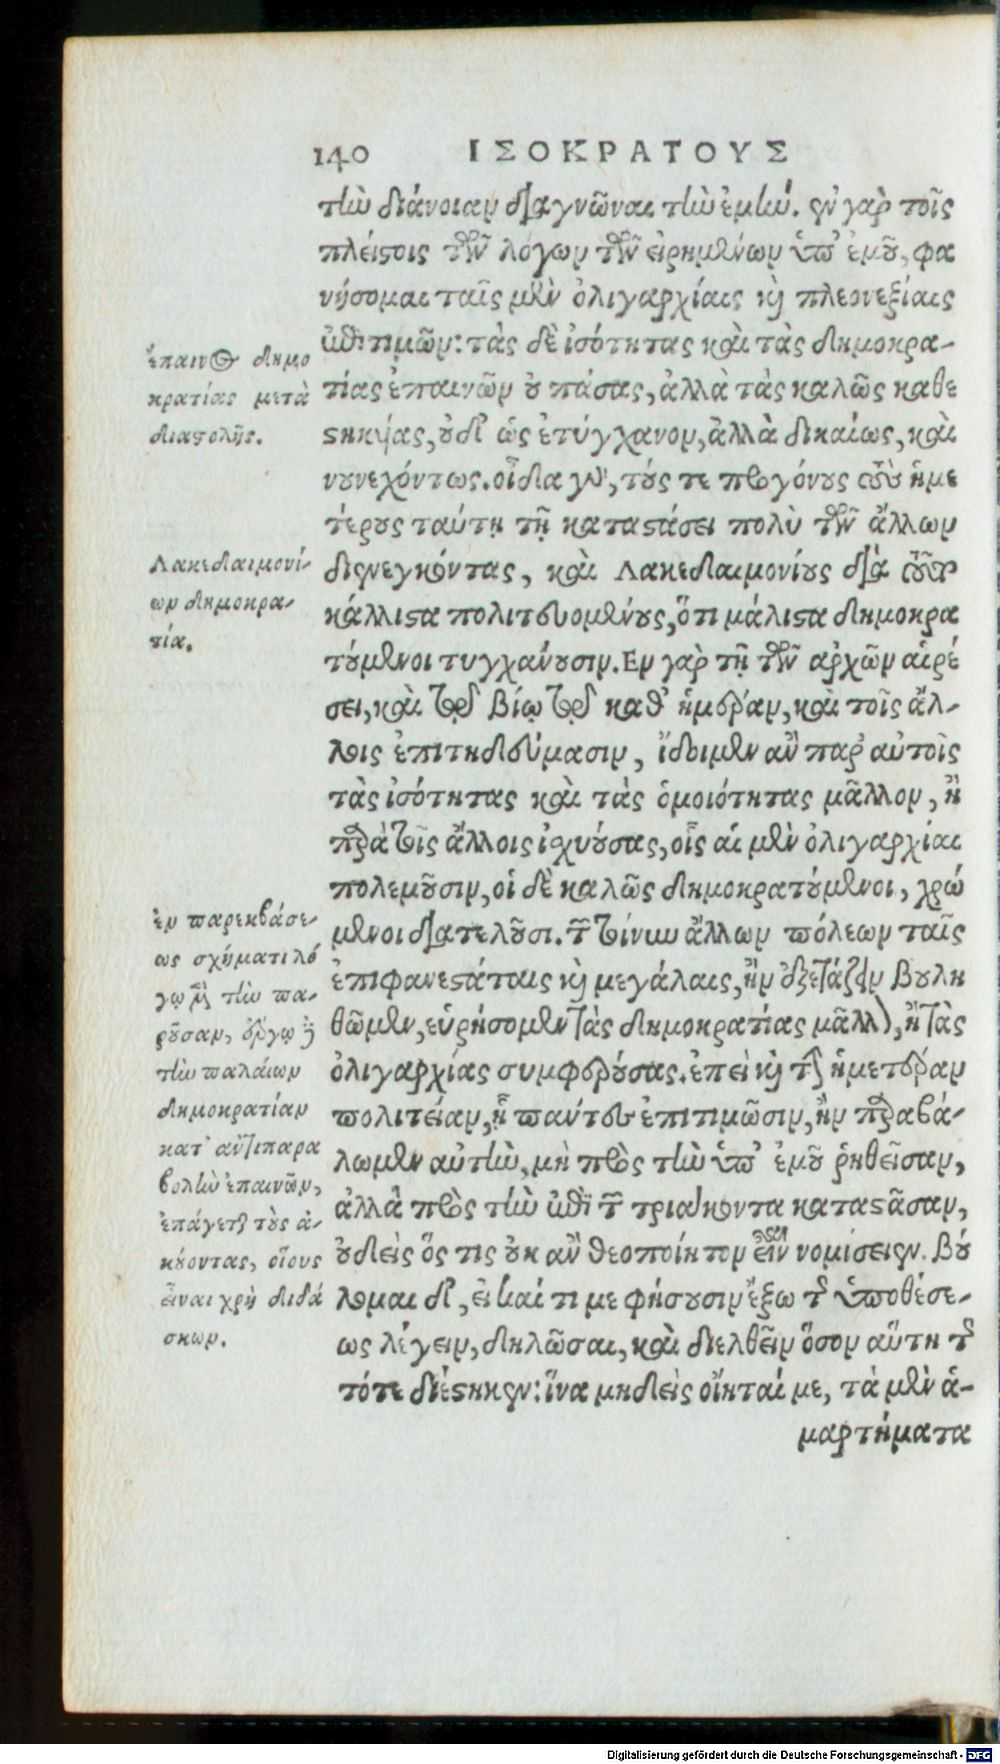 140 ΙΣΟΚΡΑΤΟΥΣ
τὴν διάνοιαν διαγνῶναι τὴν ἐμήν. ἐν γὰρ τοῖς
πλείστοις τῶν λόγων τῶν εἰρημένων ὑπ' ἐμοῦ, φα
νήσομαι ταῖς μὲν ὀλιγαρχίαις καὶ πλεονεξίαις
ἐπιτιμῶν: τὰς δὲ ἰσότητας καὶ τὰς δημοκρα-
τίας ἐπαινῶν οὐ πάσας, ἀλλὰ τὰς καλῶς καθε
στηκυίας, οὐδ' ὡς ἐτύγχανον, ἀλλὰ δικαίως, καὶ
νουνεχόντως. οἶδα γὰρ, τούς τε προγόνους τοὺς ἡμε
τέρους ταύτῃ τῇ καταστάσει πολὺ τῶν ἄλλων
διενεγκόντας, καὶ Λακεδαιμονίους διὰ τοῦτο
κάλλιστα πολιτευομένους, ὅτι μάλιστα δημοκρα
τούμενοι τυγχάνουσιν. Εν γὰρ τῇ τῶν ἀρχῶν αἱρέ
σει, καὶ τῷ βίῳ τῷ καθ' ἡμέραν, καὶ τοῖς ἄλ-
λοις ἐπιτηδεύμασιν, ἴδοιμεν ἂν παρ' αὐτοῖς
τὰς ἰσότητας καὶ τὰς ὁμοιότητας μᾶλλον, ἢ
παρὰ τοῖς ἄλλοις ἰχυούσας, οἷς αἱ μὲν ὀλιγαρχίαι
πολεμοῦσιν, οἱ δὲ καλῶς δημοκρατούμενοι, χρώ
μενοι διατελοῦσι. τῶν τοίνυν ἄλλων πόλεων ταῖς
ἐπιφανεστάταις καὶ μεγάλαις, ἢν ἐξετάζειν βουλη
θῶμεν, εὑρήσομεν τὰς δημοκρατίας μᾶλλον, ἢ τὰς
ὀλιγαρχίας συμφερούσας. ἐπεὶ καὶ τὴν ἡμετέραν
πολιτείαν, ᾗ πάντες ἐπιτιμῶσιν, ἢν παραβά-
λωμεν αὐτὴν, μὴ πρὸς τὴν ὑπ' ἐμοῦ ῥηθεῖσαν,
ἀλλὰ πρὸς τὴν ἐπὶ τῶν τριάκοντα καταστᾶσαν,
οὐδεὶς ὅς τις οὐκ ἂν θεοποίητον εἶναι νομίσειεν. Βού
λομαι δ', εἰ καί τι με φήσουσιν ἔξω τῆς ὑποθέσε-
ως λέγειν, δηλῶσαι, καὶ διελθεῖν ὅσον αὕτη τῆς
τότε διέστηκεν: ἵνα μηδεὶς οἴηταί με, τὰ μὲν ἁ-
μαρτήματα
ἔπαινος δημο
κρατίας μετὰ
διαστολῆς.
Λακεδαιμονί-
ων δημοκρα-
τία.
ἐν παρεκβάσε-
ως σχήματι λό
γῳ μὲν τὴν πα-
ροῦσαν, ἔργῳ δὲ
τὴν παλαίων
δημοκρατίαν
κατ' ἀντιπαρα
βολὴν ἐπαινῶν,
ἐπάγεται τοὺς ἀ-
κούοντας, οἵους
εἶναι χρὴ διδά
σκων.
Digitalisierung gefördert durch die Deutsche Forschungsgemeinschaft - DFG